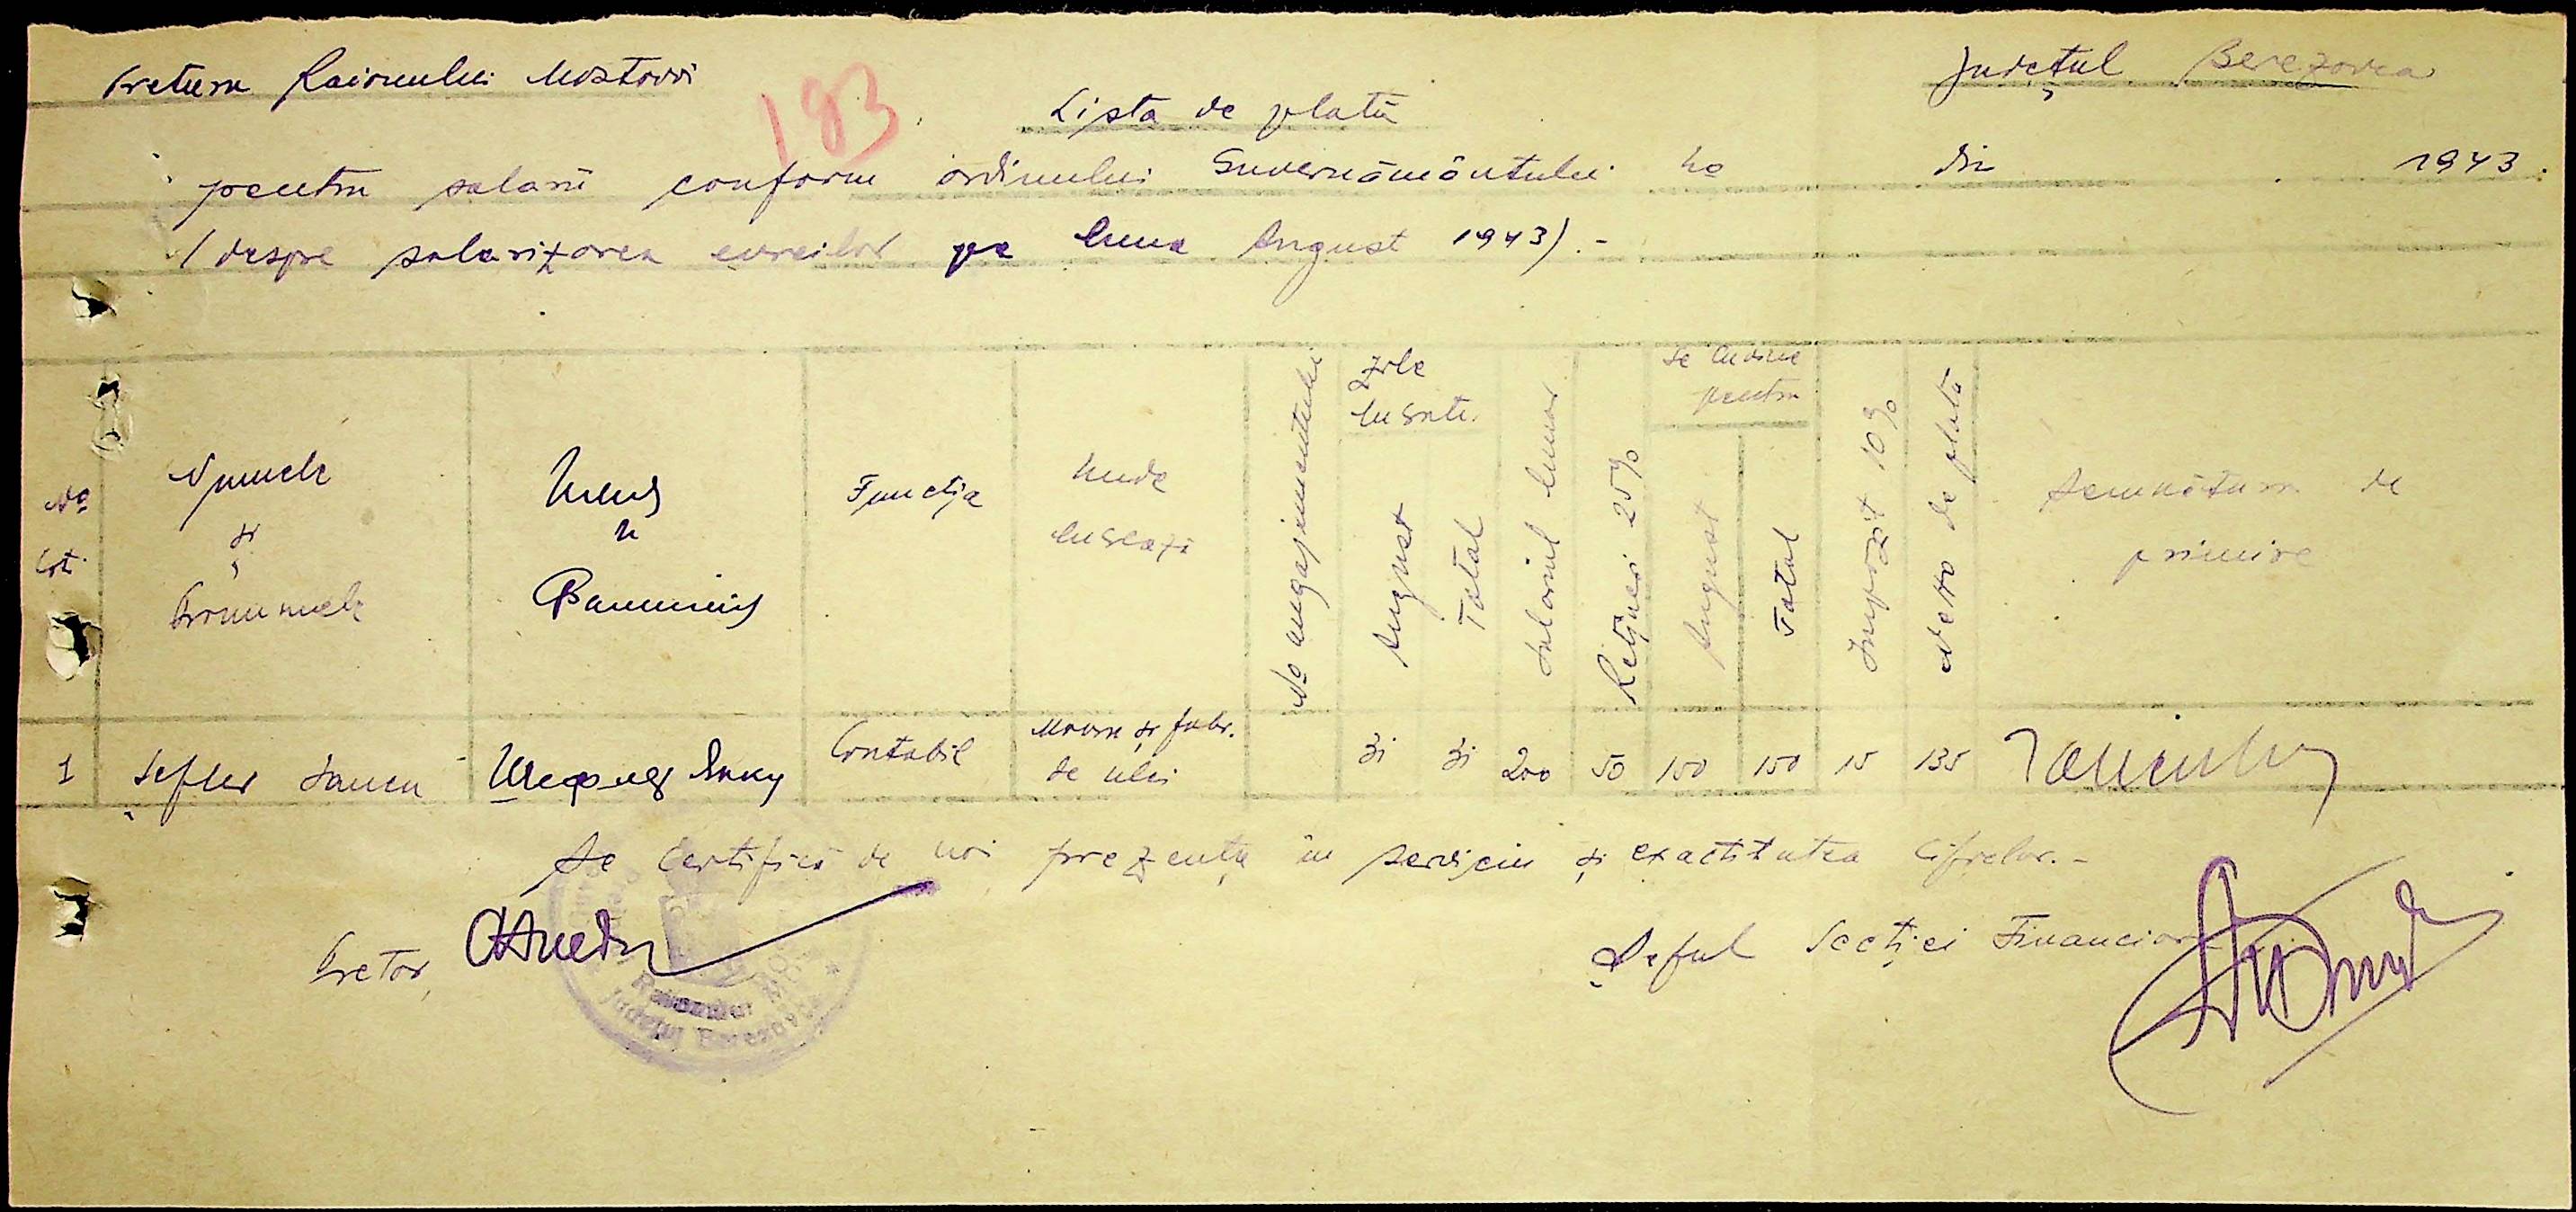 Pretura Raionului Mostovoi
Județul Berezovca
183
Lista de plată
pentru salarii conform ordinului Guvernământului No din 1943.
(despre salarizarea evreilor pe luna August 1943).-
No
Crt.
Numele
și
Pronumele
Имя
и
Фамилия
Funcția
Unde
lucrează
No angajamentului
Zile
lucrate.
August
Total
Salariul lunar
Rețineri 25%
Se cuvine
pentru
August
Total
Impozit 10%
Netto de plată
Semnătura de
primire
1 Șefler Iancu Шефлер Янку Contabil Moara și fabr.
de ulei
31 31 200 50 150 150 15 135
Se certifică de noi prezența în serviciu și exactitatea cifrelor.-
Pretor,
Șeful Secției Financiare
Raionului
Județul Berezovca